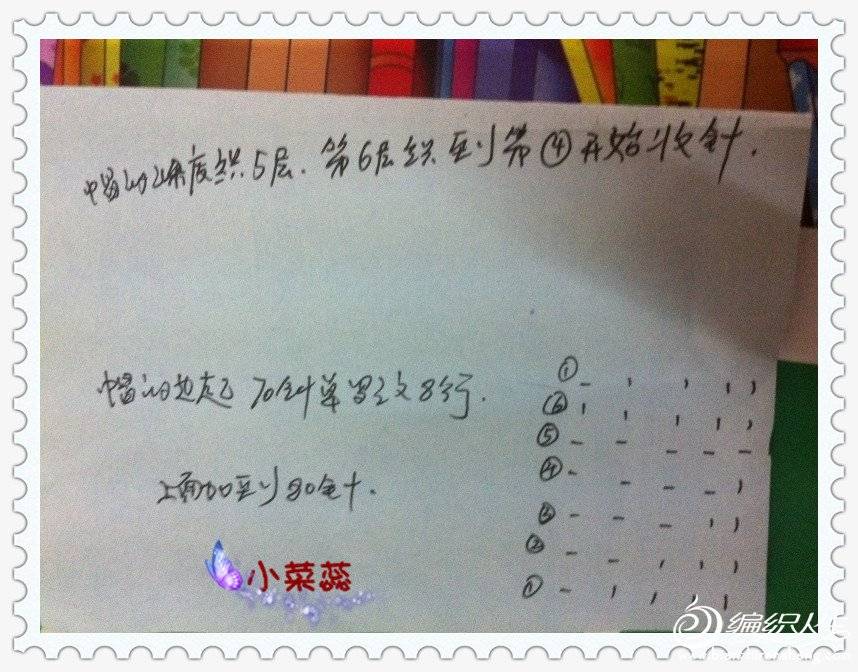 帽的深度织5层.第6层织至少第④开始收针.
帽的边起70针单罗纹8行.
上面加至少80针.
① - ı ı ı ı
⑥ ı ı ı ı ı
⑤ - - - - -
④ - - - ı
③ - - - ı ı
② - - ı ı ı
① - ı ı ı ı
小菜蕊
编织人生